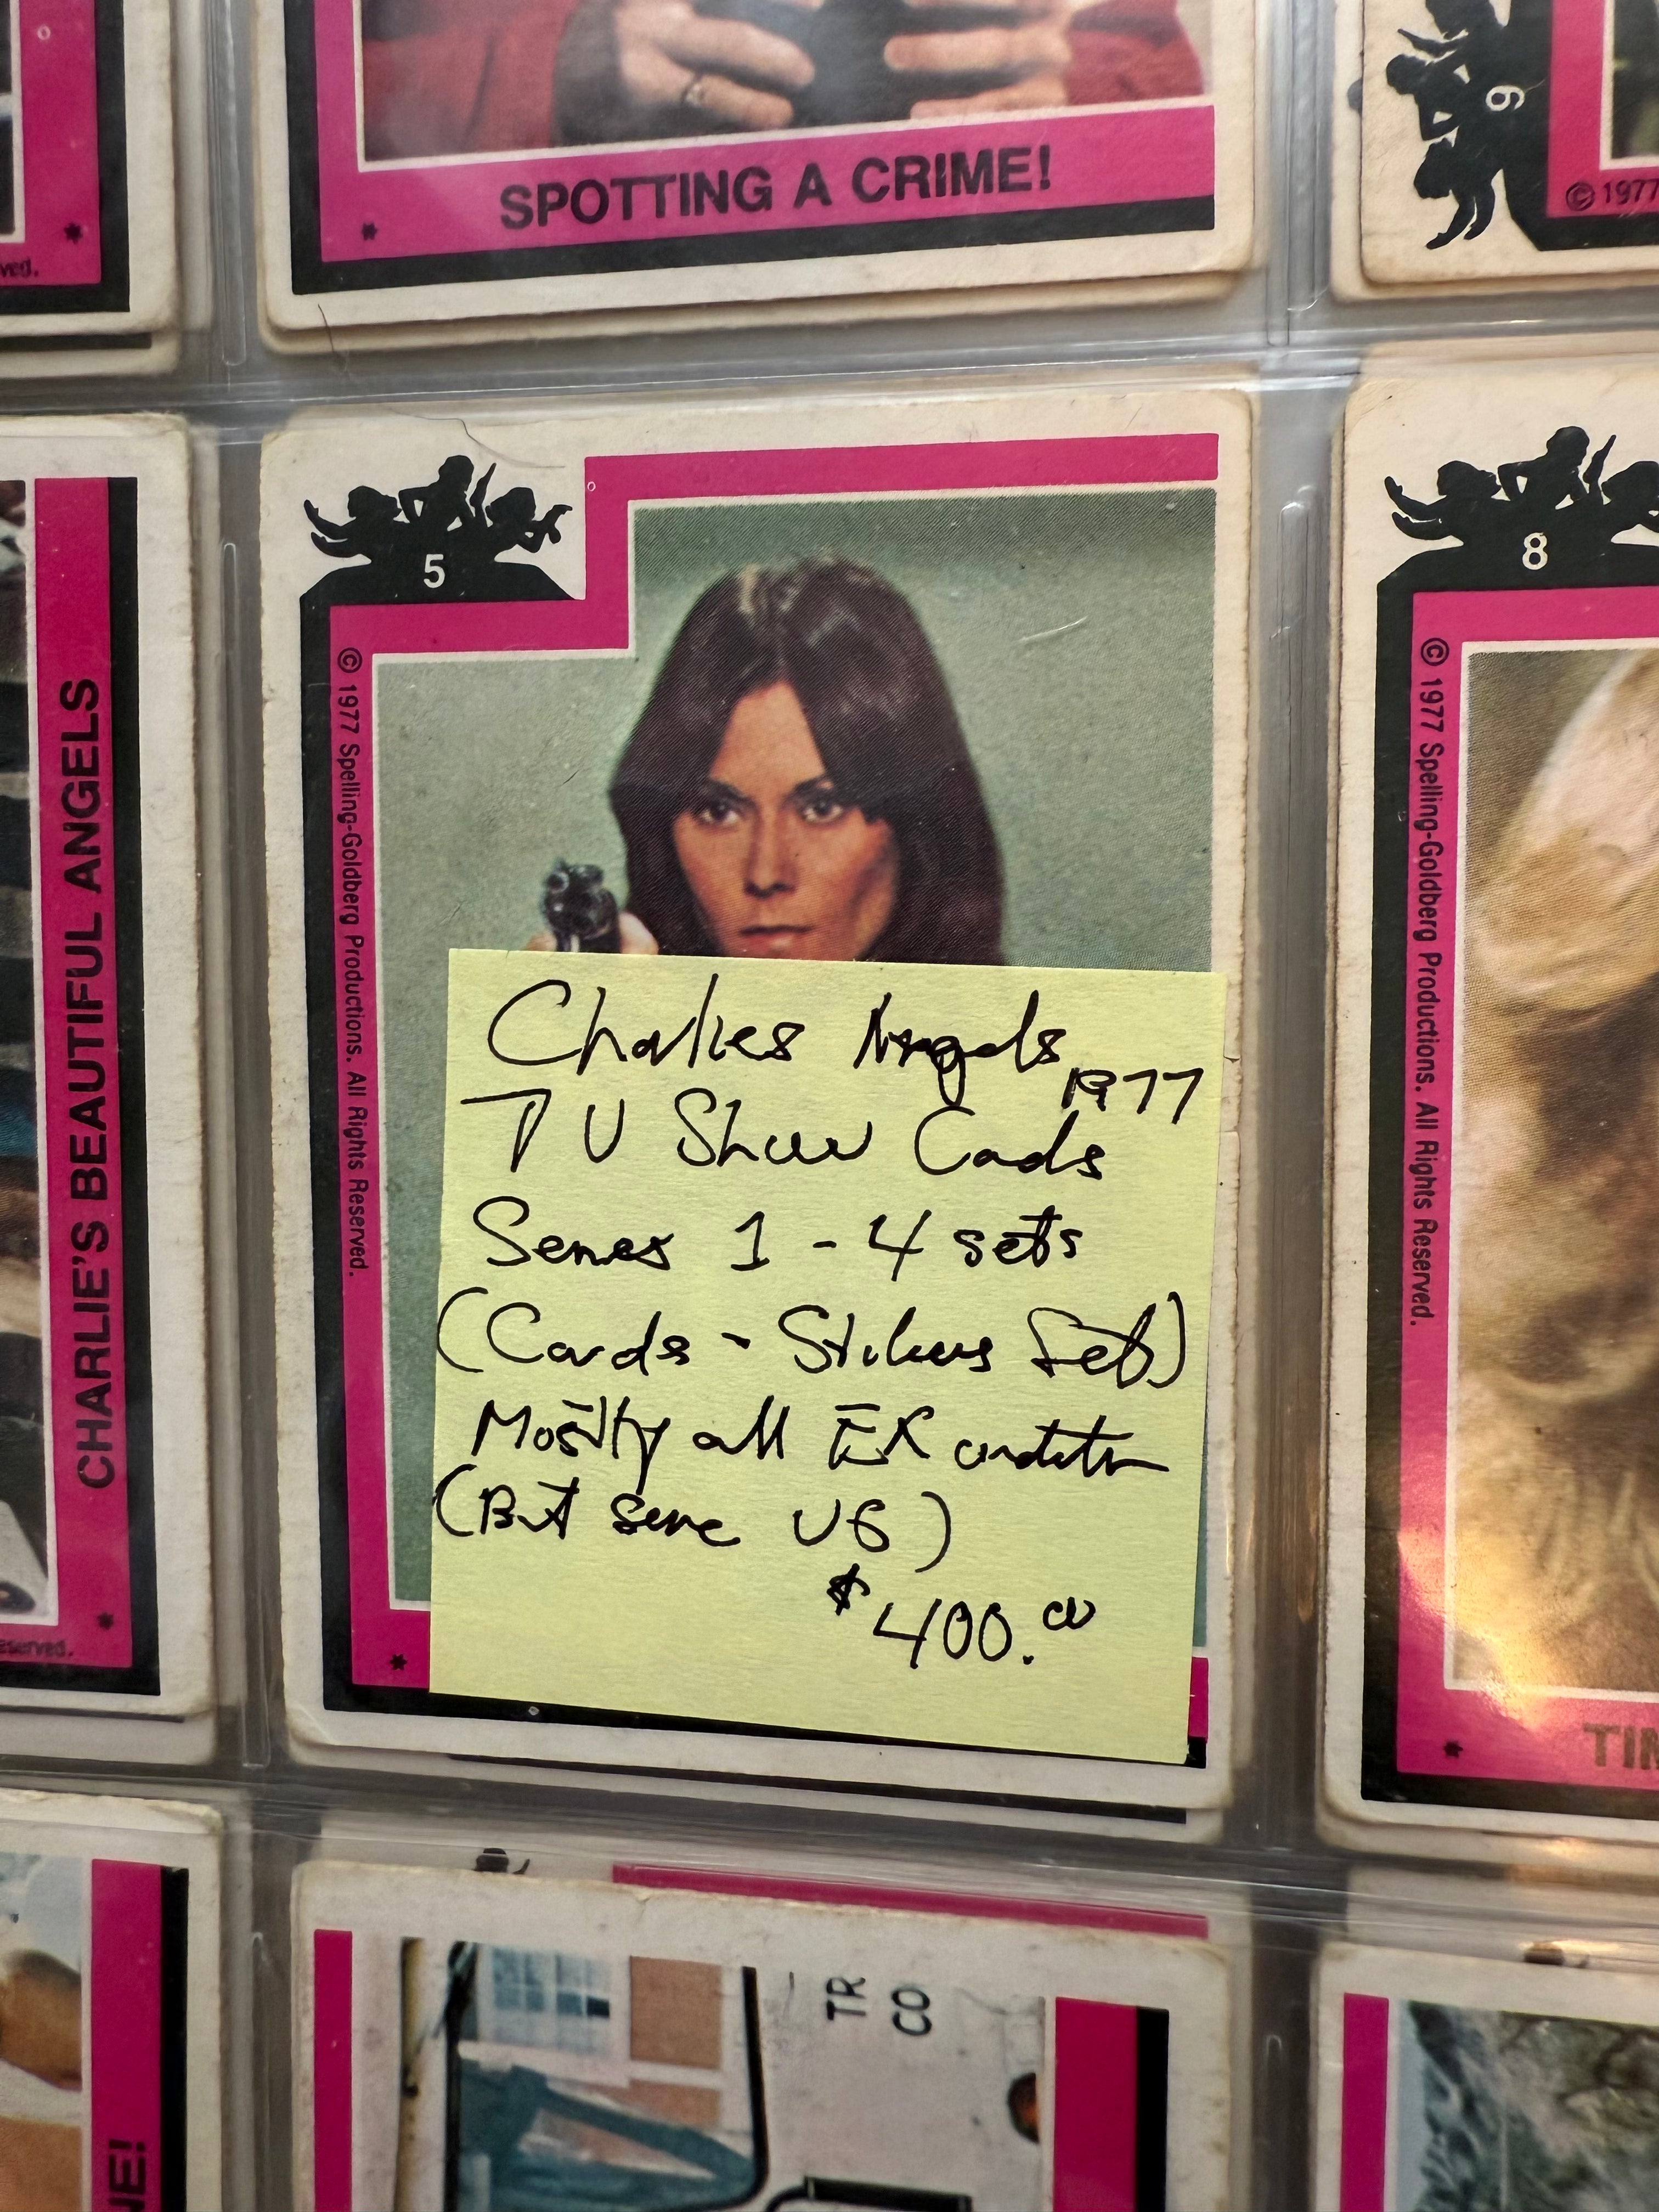 SPOTTING A CRIME!
*
*
ved.
6
© 1977
CHARLIE'S BEAUTIFUL ANGELS
*
eserved.
5
© 1977 Spelling-Goldberg Productions. All Rights Reserved.
*
Charlies Angels
1977
TV Show Cards
Series 1 - 4 sets
(Cards - Stickers Set)
Mostly all EX condition
(But some VG)
$400.00
8
© 1977 Spelling-Goldberg Productions. All Rights Reserved.
*
TIM
NE!
TR
CO